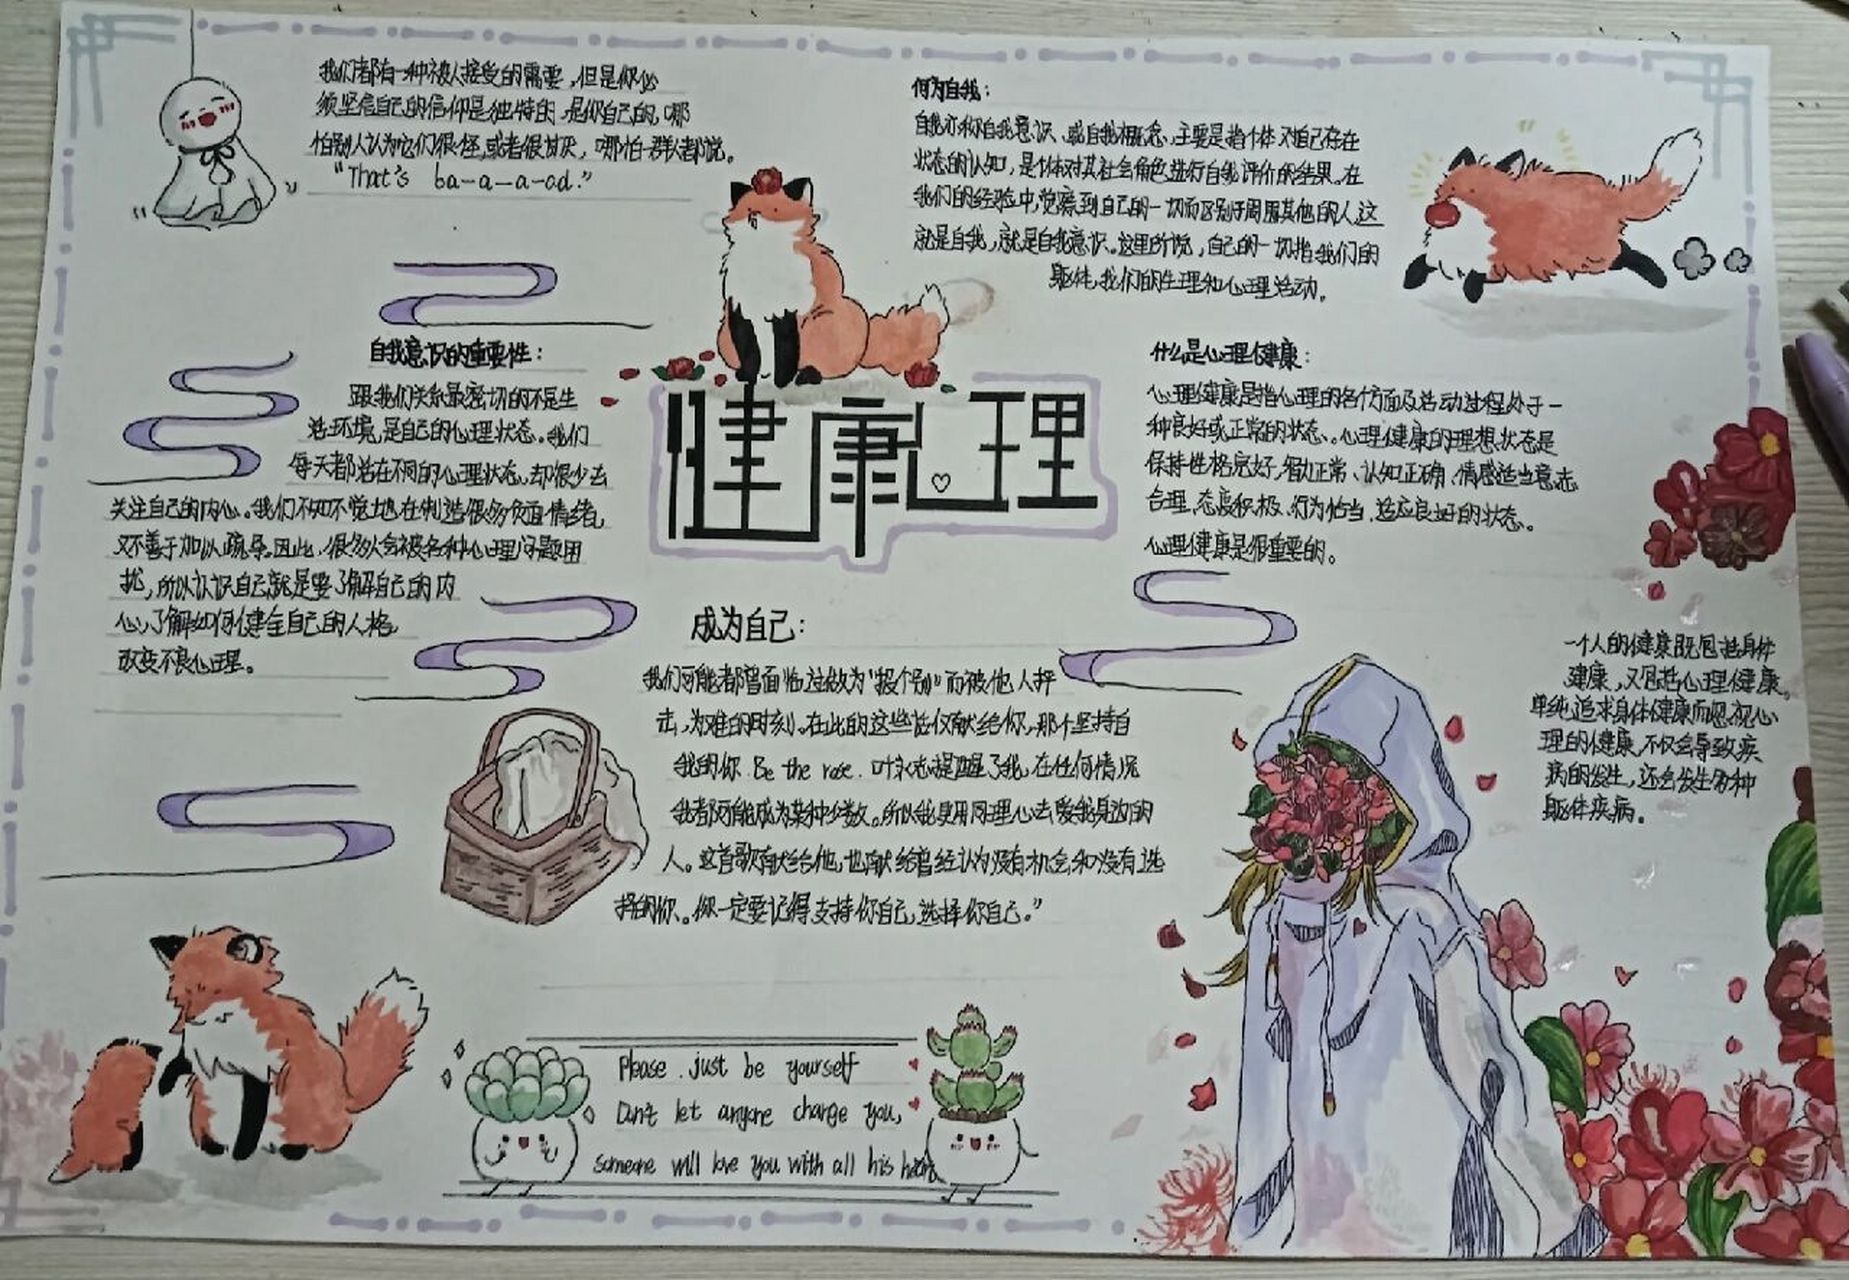 我们都有一种被人接受的需要,但是你必
须坚信自己的信仰是独特的,是你自己的,哪
怕别人认为它们很怪,或者很讨厌,哪怕一群人都说。
"That's ba-a-a-ad."
何为自我:
自我亦称自我意识、或自我概念,主要是指个体对自己存在
状态的认知,是个体对其社会角色进行自我评价的结果。在
我们的经验中,觉察到自己的一切而区别于周围其他的人,这
就是自我,就是自我意识。这里所说,自己的一切指我们的
躯体,我们的生理和心理活动。
自我意识的重要性:
跟我们关系最密切的不是生
活环境,是自己的心理状态。我们
每天都活在不同的心理状态,却很少去
关注自己的内心。我们不知不觉地在制造很多负面情绪,
又不善于加以疏导。因此,很多人会被各种心理问题困
扰,所以认识自己就是要了解自己的内
心,了解如何健全自己的人格,
改变不良心理。
健康心理
什么是心理健康:
心理健康是指心理的各个方面及活动过程处于一
种良好或正常的状态。心理健康的理想状态是
保持性格完好,智力正常、认知正确,情感适当,意志
合理,态度积极,行为恰当,适应良好的状态。
心理健康是很重要的。
成为自己:
我们可能都曾面临过做为"报个别"而被他人抨
击,为难的时刻。在此的这些话仅献给你,那个坚持自
我的你. Be the rose. 叶永志提醒了我,在任何情况
我都可能成为某种少数。所以我更用同理心去爱我身边的
人。这首歌献给他,也献给曾经认为没有机会和没有选
择的你。你一定要记得支持你自己,选择你自己。"
一个人的健康既包括身体
健康,又包括心理健康。
单纯追求身体健康而忽视心
理的健康,不仅会导致疾
病的发生,还会发生多种
躯体疾病。
Please just be yourself
Don't let anyone change you,
someone will love you with all his heart.